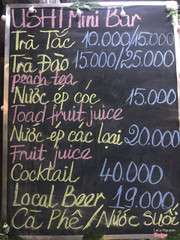 USHI Mini Bar
Trà Tắc 10.000/15.000
Trà Đào 15000/25.000
peach tea
Nước ép cóc 15.000
Toad fruit juice
Nước ép các loại 20.000
Fruit juice
Cocktail 40.000
Local Beer 19.000
Cà Phê / Nước suối